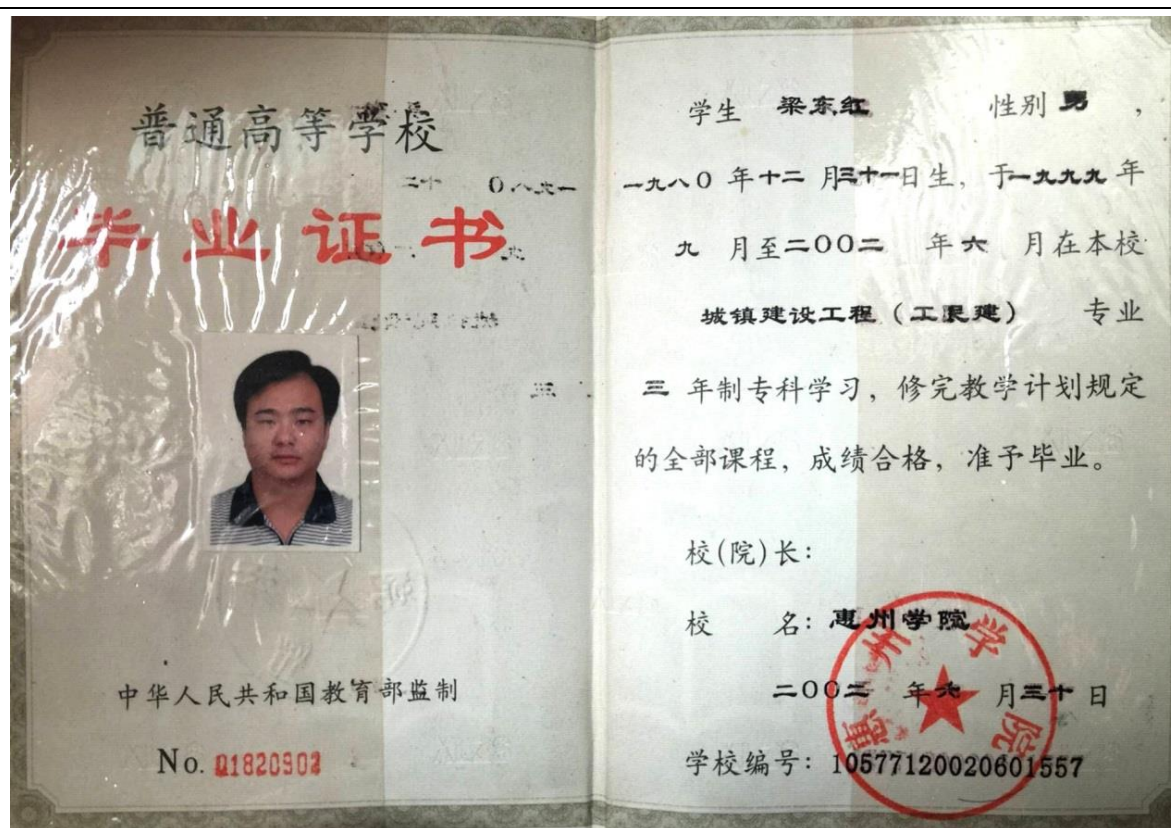 普通高等学校
毕业证书
中华人民共和国教育部监制
No. 01820902
学生 梁东红 性别 男,
一九八0 年十二 月三十一日生, 于一九九九 年
九 月至二00二 年六 月在本校
城镇建设工程(工民建) 专业
三 年制专科学习, 修完教学计划规定
的全部课程, 成绩合格, 准予毕业。
校(院)长:
校 名: 惠州学院
二00二 年六 月三十 日
惠州学院
学校编号: 10577120020601557